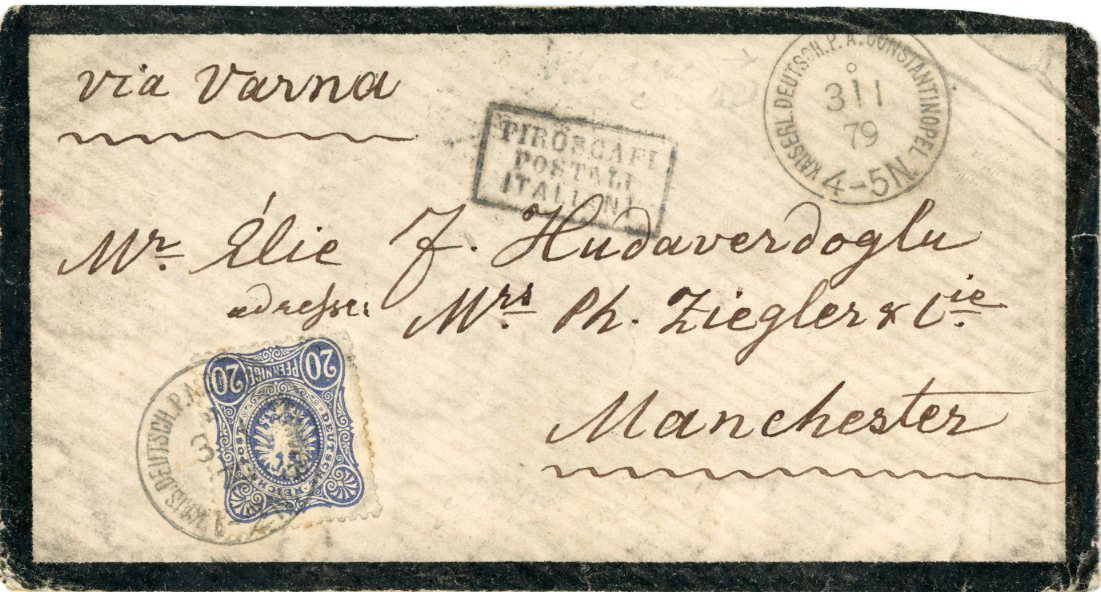 via Varna
KAISERL. DEUTSCH. P. A. CONSTANTINOPEL
3 11
79
4-5N.
PIROSCAFI
POSTALI
ITALIANI
Mr. Élie F. Hudaverdoglu
adresse: Mrs Ph. Ziegler & Cie.
Manchester
20 PFENNIGE 20
DEUTSCHE REICHS-POST
DEUTSCH. P. A.